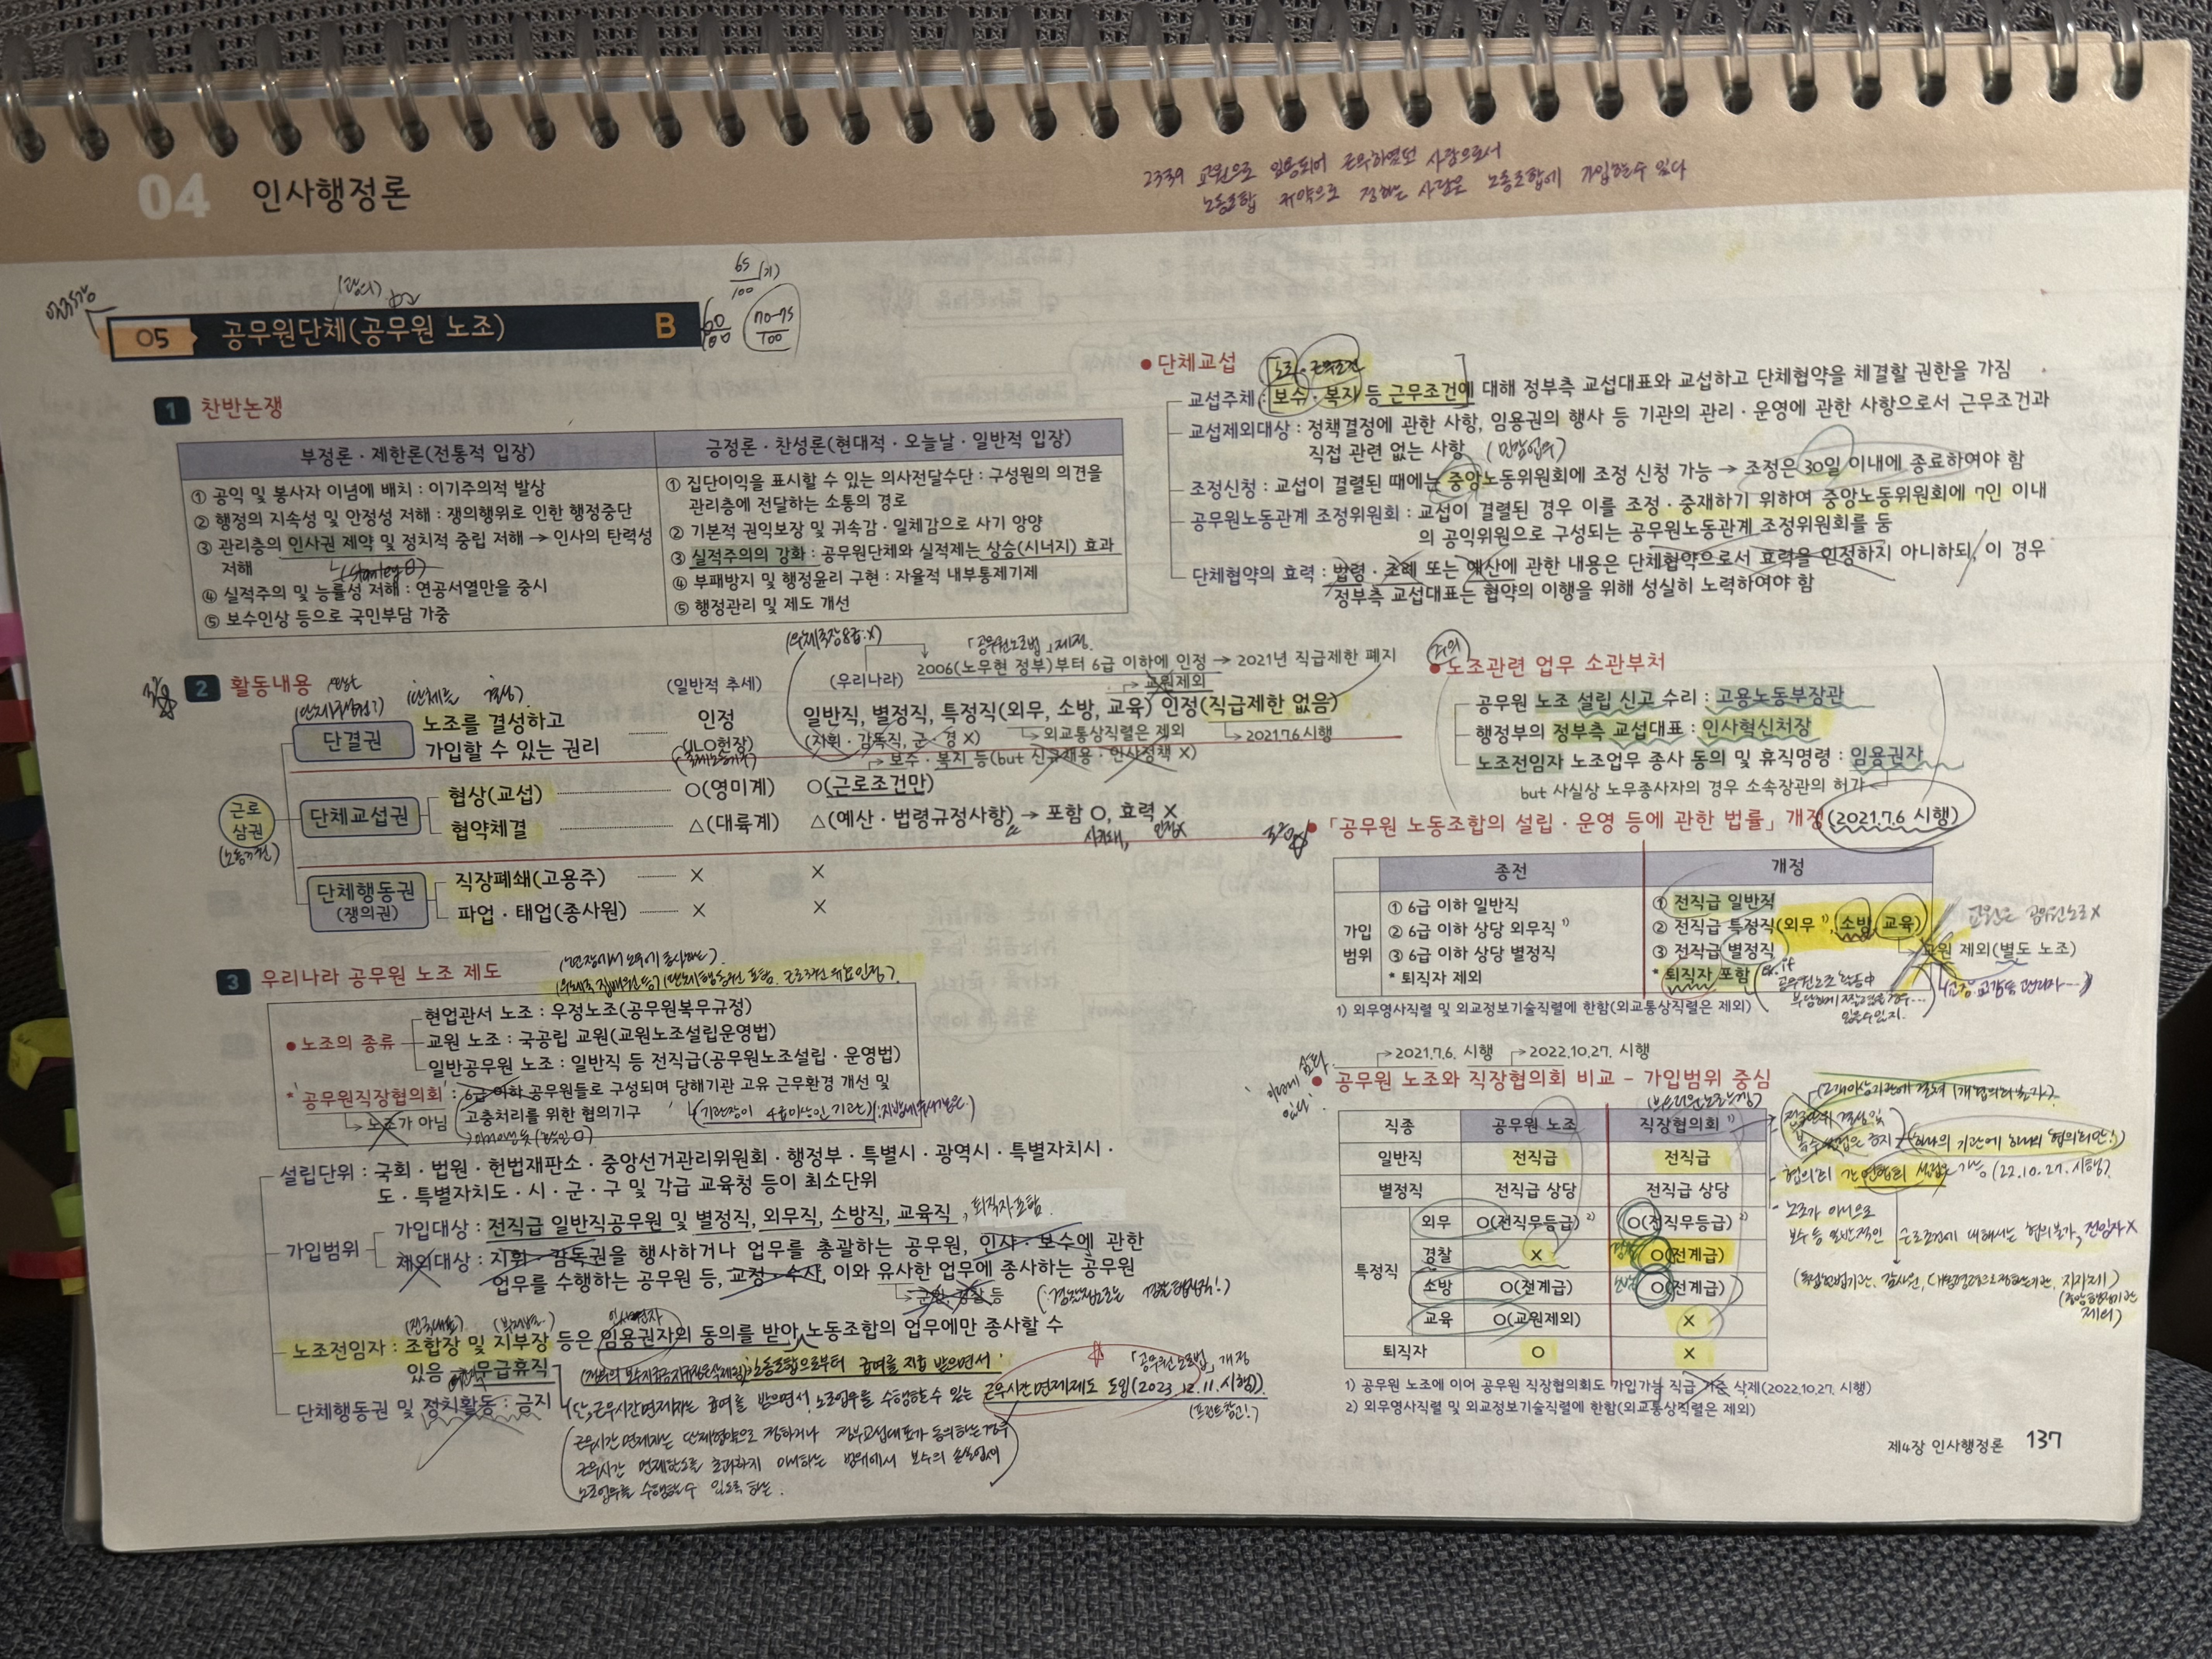 04 인사행정론
2339 교원으로 임용되어 근무하였던 사람으로서
노동조합 규약으로 정하는 사람은 노동조합에 가입할 수 있다
05 공무원단체(공무원 노조) B
65/100
60/100
70-75/100
1 찬반논쟁
부정론·제한론(전통적 입장)
① 공익 및 봉사자 이념에 배치 : 이기주의적 발상
② 행정의 지속성 및 안정성 저해 : 쟁의행위로 인한 행정중단
③ 관리층의 인사권 제약 및 정치적 중립 저해 → 인사의 탄력성
저해
④ 실적주의 및 능률성 저해 : 연공서열만을 중시
⑤ 보수인상 등으로 국민부담 가중
긍정론·찬성론(현대적·오늘날·일반적 입장)
① 집단이익을 표시할 수 있는 의사전달수단 : 구성원의 의견을
관리층에 전달하는 소통의 경로
② 기본적 권익보장 및 귀속감·일체감으로 사기 앙양
③ 실적주의의 강화 : 공무원단체와 실적제는 상승(시너지) 효과
④ 부패방지 및 행정윤리 구현 : 자율적 내부통제기제
⑤ 행정관리 및 제도 개선
2 활동내용
(일반적 추세)
(우리나라)
「공무원노조법」제정
2006(노무현 정부)부터 6급 이하에 인정 → 2021년 직급제한 폐지
교원제외
근로
삼권
단결권
노조를 결성하고
가입할 수 있는 권리
인정
(ILO헌장)
일반직, 별정직, 특정직(외무, 소방, 교육) 인정(직급제한 없음)
(지휘·감독직, 군·경 X)
외교통상직렬은 제외
2021.7.6 시행
보수·복지 등(but 신규채용·인사정책 X)
단체교섭권
협상(교섭) O(영미계) O(근로조건만)
협약체결 △(대륙계) △(예산·법령규정사항) → 포함 O, 효력 X
단체행동권
(쟁의권)
직장폐쇄(고용주) X X
파업·태업(종사원) X X
3 우리나라 공무원 노조 제도
● 노조의 종류
현업관서 노조 : 우정노조(공무원복무규정)
교원 노조 : 국공립 교원(교원노조설립운영법)
일반공무원 노조 : 일반직 등 전직급(공무원노조설립·운영법)
* '공무원직장협의회' : 6급 이하 공무원들로 구성되며 당해기관 고유 근무환경 개선 및
고충처리를 위한 협의기구
노조가 아님
(기관장이 4급이상인 기관)
설립단위 : 국회·법원·헌법재판소·중앙선거관리위원회·행정부·특별시·광역시·특별자치시·
도·특별자치도·시·군·구 및 각급 교육청 등이 최소단위
가입범위
가입대상 : 전직급 일반직공무원 및 별정직, 외무직, 소방직, 교육직, 퇴직자포함
제외대상 : 지휘·감독권을 행사하거나 업무를 총괄하는 공무원, 인사·보수에 관한
업무를 수행하는 공무원 등, 교정·수사, 이와 유사한 업무에 종사하는 공무원
군인, 경찰 등
노조전임자 : 조합장 및 지부장 등은 임용권자의 동의를 받아 노동조합의 업무에만 종사할 수
있음 무급휴직
노동조합으로부터 급여를 지급 받으면서
단체행동권 및 정치활동 : 금지
「공무원노조법」개정
(단, 근무시간면제자는 급여를 받으면서 노조업무를 수행할 수 있는 근무시간면제제도 도입(2023.12.11.시행))
(프린트참고!)
근무시간 면제자는 단체협약으로 정하거나 정부교섭대표가 동의하는 경우
근무시간 면제한도를 초과하지 아니하는 범위에서 보수의 손실없이
노조업무를 수행할 수 있도록 하는
● 단체교섭
노조·근무조건
교섭주체 : 보수·복지 등 근무조건에 대해 정부측 교섭대표와 교섭하고 단체협약을 체결할 권한을 가짐
교섭제외대상 : 정책결정에 관한 사항, 임용권의 행사 등 기관의 관리·운영에 관한 사항으로서 근무조건과
직접 관련 없는 사항
조정신청 : 교섭이 결렬된 때에는 중앙노동위원회에 조정 신청 가능 → 조정은 30일 이내에 종료하여야 함
공무원노동관계 조정위원회 : 교섭이 결렬된 경우 이를 조정·중재하기 위하여 중앙노동위원회에 7인 이내
의 공익위원으로 구성되는 공무원노동관계 조정위원회를 둠
단체협약의 효력 : 법령·조례 또는 예산에 관한 내용은 단체협약으로서 효력을 인정하지 아니하되, 이 경우
정부측 교섭대표는 협약의 이행을 위해 성실히 노력하여야 함
주의
● 노조관련 업무 소관부처
공무원 노조 설립 신고 수리 : 고용노동부장관
행정부의 정부측 교섭대표 : 인사혁신처장
노조전임자 노조업무 종사 동의 및 휴직명령 : 임용권자
but 사실상 노무종사자의 경우 소속장관의 허가
● 「공무원 노동조합의 설립·운영 등에 관한 법률」 개정(2021.7.6 시행)
종전 개정
가입
범위
① 6급 이하 일반직
② 6급 이하 상당 외무직 1)
③ 6급 이하 상당 별정직
* 퇴직자 제외
① 전직급 일반직
② 전직급 특정직(외무 1), 소방, 교육)
③ 전직급 별정직
* 퇴직자 포함
교원 제외(별도 노조)
교원은 공무원노조X
1) 외무영사직렬 및 외교정보기술직렬에 한함(외교통상직렬은 제외)
2021.7.6. 시행 2022.10.27. 시행
● 공무원 노조와 직장협의회 비교 – 가입범위 중심
직종 공무원 노조 직장협의회 1)
일반직 전직급 전직급
별정직 전직급 상당 전직급 상당
특정직
외무 O(전직무등급) 2) O(전직무등급) 2)
경찰 X O(전계급)
소방 O(전계급) O(전계급)
교육 O(교원제외) X
퇴직자 O X
1) 공무원 노조에 이어 공무원 직장협의회도 가입가능 직급 기준 삭제(2022.10.27. 시행)
2) 외무영사직렬 및 외교정보기술직렬에 한함(외교통상직렬은 제외)
(하나의 기관에 하나의 협의회만!)
협의회 간 연합회 설립은 가능(22.10.27. 시행)
노조가 아니므로
보수 등 일반적인 근로조건에 대해서는 협의불가, 전임자X
제4장 인사행정론 137